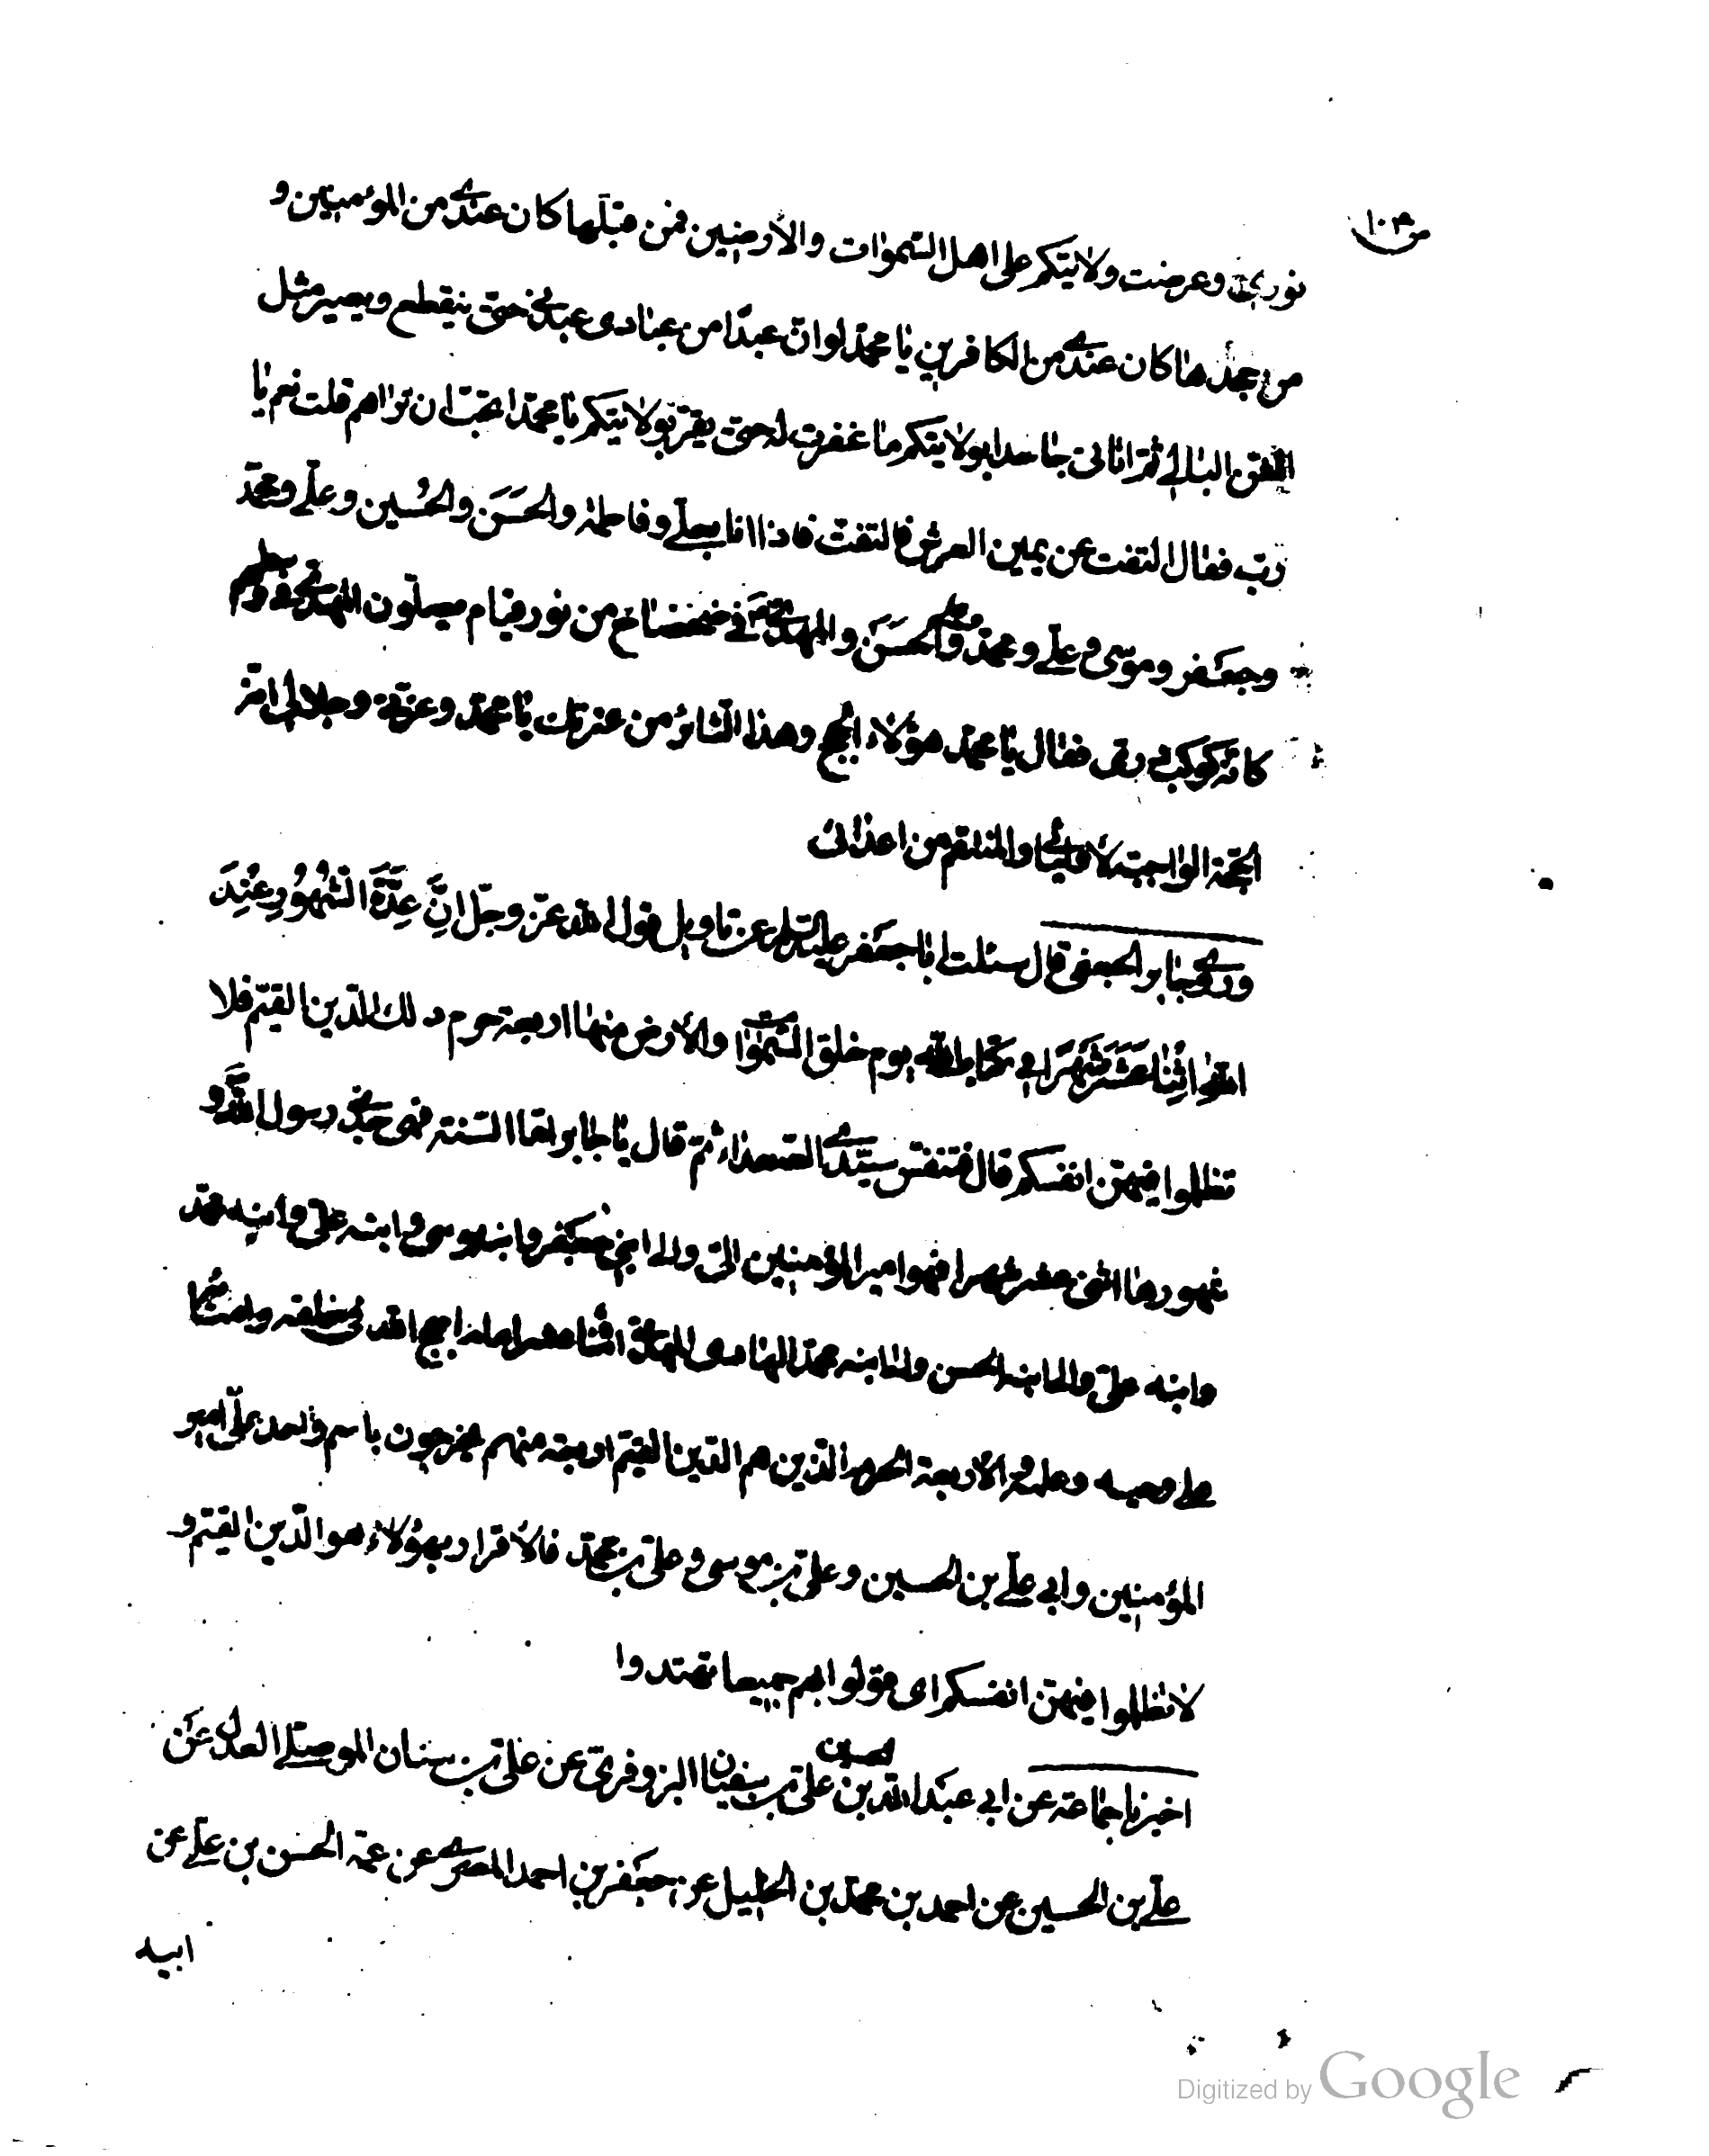 ص ١٠٣
نوري وعرضت ولايتكم على اهل السموات والأرضين فمن قبلها كان عندي من المؤمنين و
من جحدها كان عندي من الكافرين يا محمد لو ان عبدًا من عبادي عبدني حتى ينقطع ويصير مثل
الشن البالي ثم اتاني جاحدا بولايتكم ما غفرت له حتى يقر بولايتكم يا محمد اتحب ان تراهم قلت نعم يا
رب فقال التفت عن يمين العرش فالتفت فاذا انا بعلي وفاطمة والحَسَن والحُسين وعلي ومحمد
وجعفر وموسى وعلي ومحمد وعلي والحسَن والمهدي في ضحضاح من نور قيام يصلون المهدي في وسطهم
كانه كوكب دري فقال يا محمد هؤلاء الحجج وهذا الثائر من عترتك يا محمد وعزتي وجلالي انه
الحجة الواجبة لاوليائي والمنتقم من اعدائي
وروى جابر الجعفي قال سئلت ابا جعفر عليه السلم عن تاويل قول الله عز وجل اِنَّ عِدَّةَ الشُهُورِ عِنْدَ
الله اثنا عَشَرَ شَهرًا في كتاب الله يوم خلق السموات والأرض منها اربعة حرم ذلك الدين القيم فلا
تظلموا فيهن انفسكم قال فتنفس سيدي الصعداء ثم قال يا جابر اما السنة فهي جدي رسول الله و
شهورها اثنى عشر شهرا فهو امير المؤمنين الي والى ابني جعفر وابنه موسى وابنه علي وابنه محمد
وابنه علي والى ابنه الحسن والى ابنه محمد الهادي المهدي اثنا عشر اماما حجج الله في خلقه وامناؤه
على وحيه وعلمه والأربعة الحرم الذين هم الدين القيم اربعة منهم يخرجون باسم واحد علي امير
المؤمنين وابي علي بن الحسين وعلي بن موسى وعلي بن محمد فالأقرار بهؤلاء هو الدين القيم و
لا تظلموا فيهن انفسكم اى قولوا بهم جميعا تهتدوا
اخبرنا جماعة عن ابي عبد الله الحسين بن علي بن سفيان البزوفري عن علي بن سنان الموصلي العدل عَن
علي بن الحسين عن احمد بن محمد بن الخليل عن جعفر بن احمد المصري عن عمه الحسن بن علي عن
ابيه
Digitized by Google